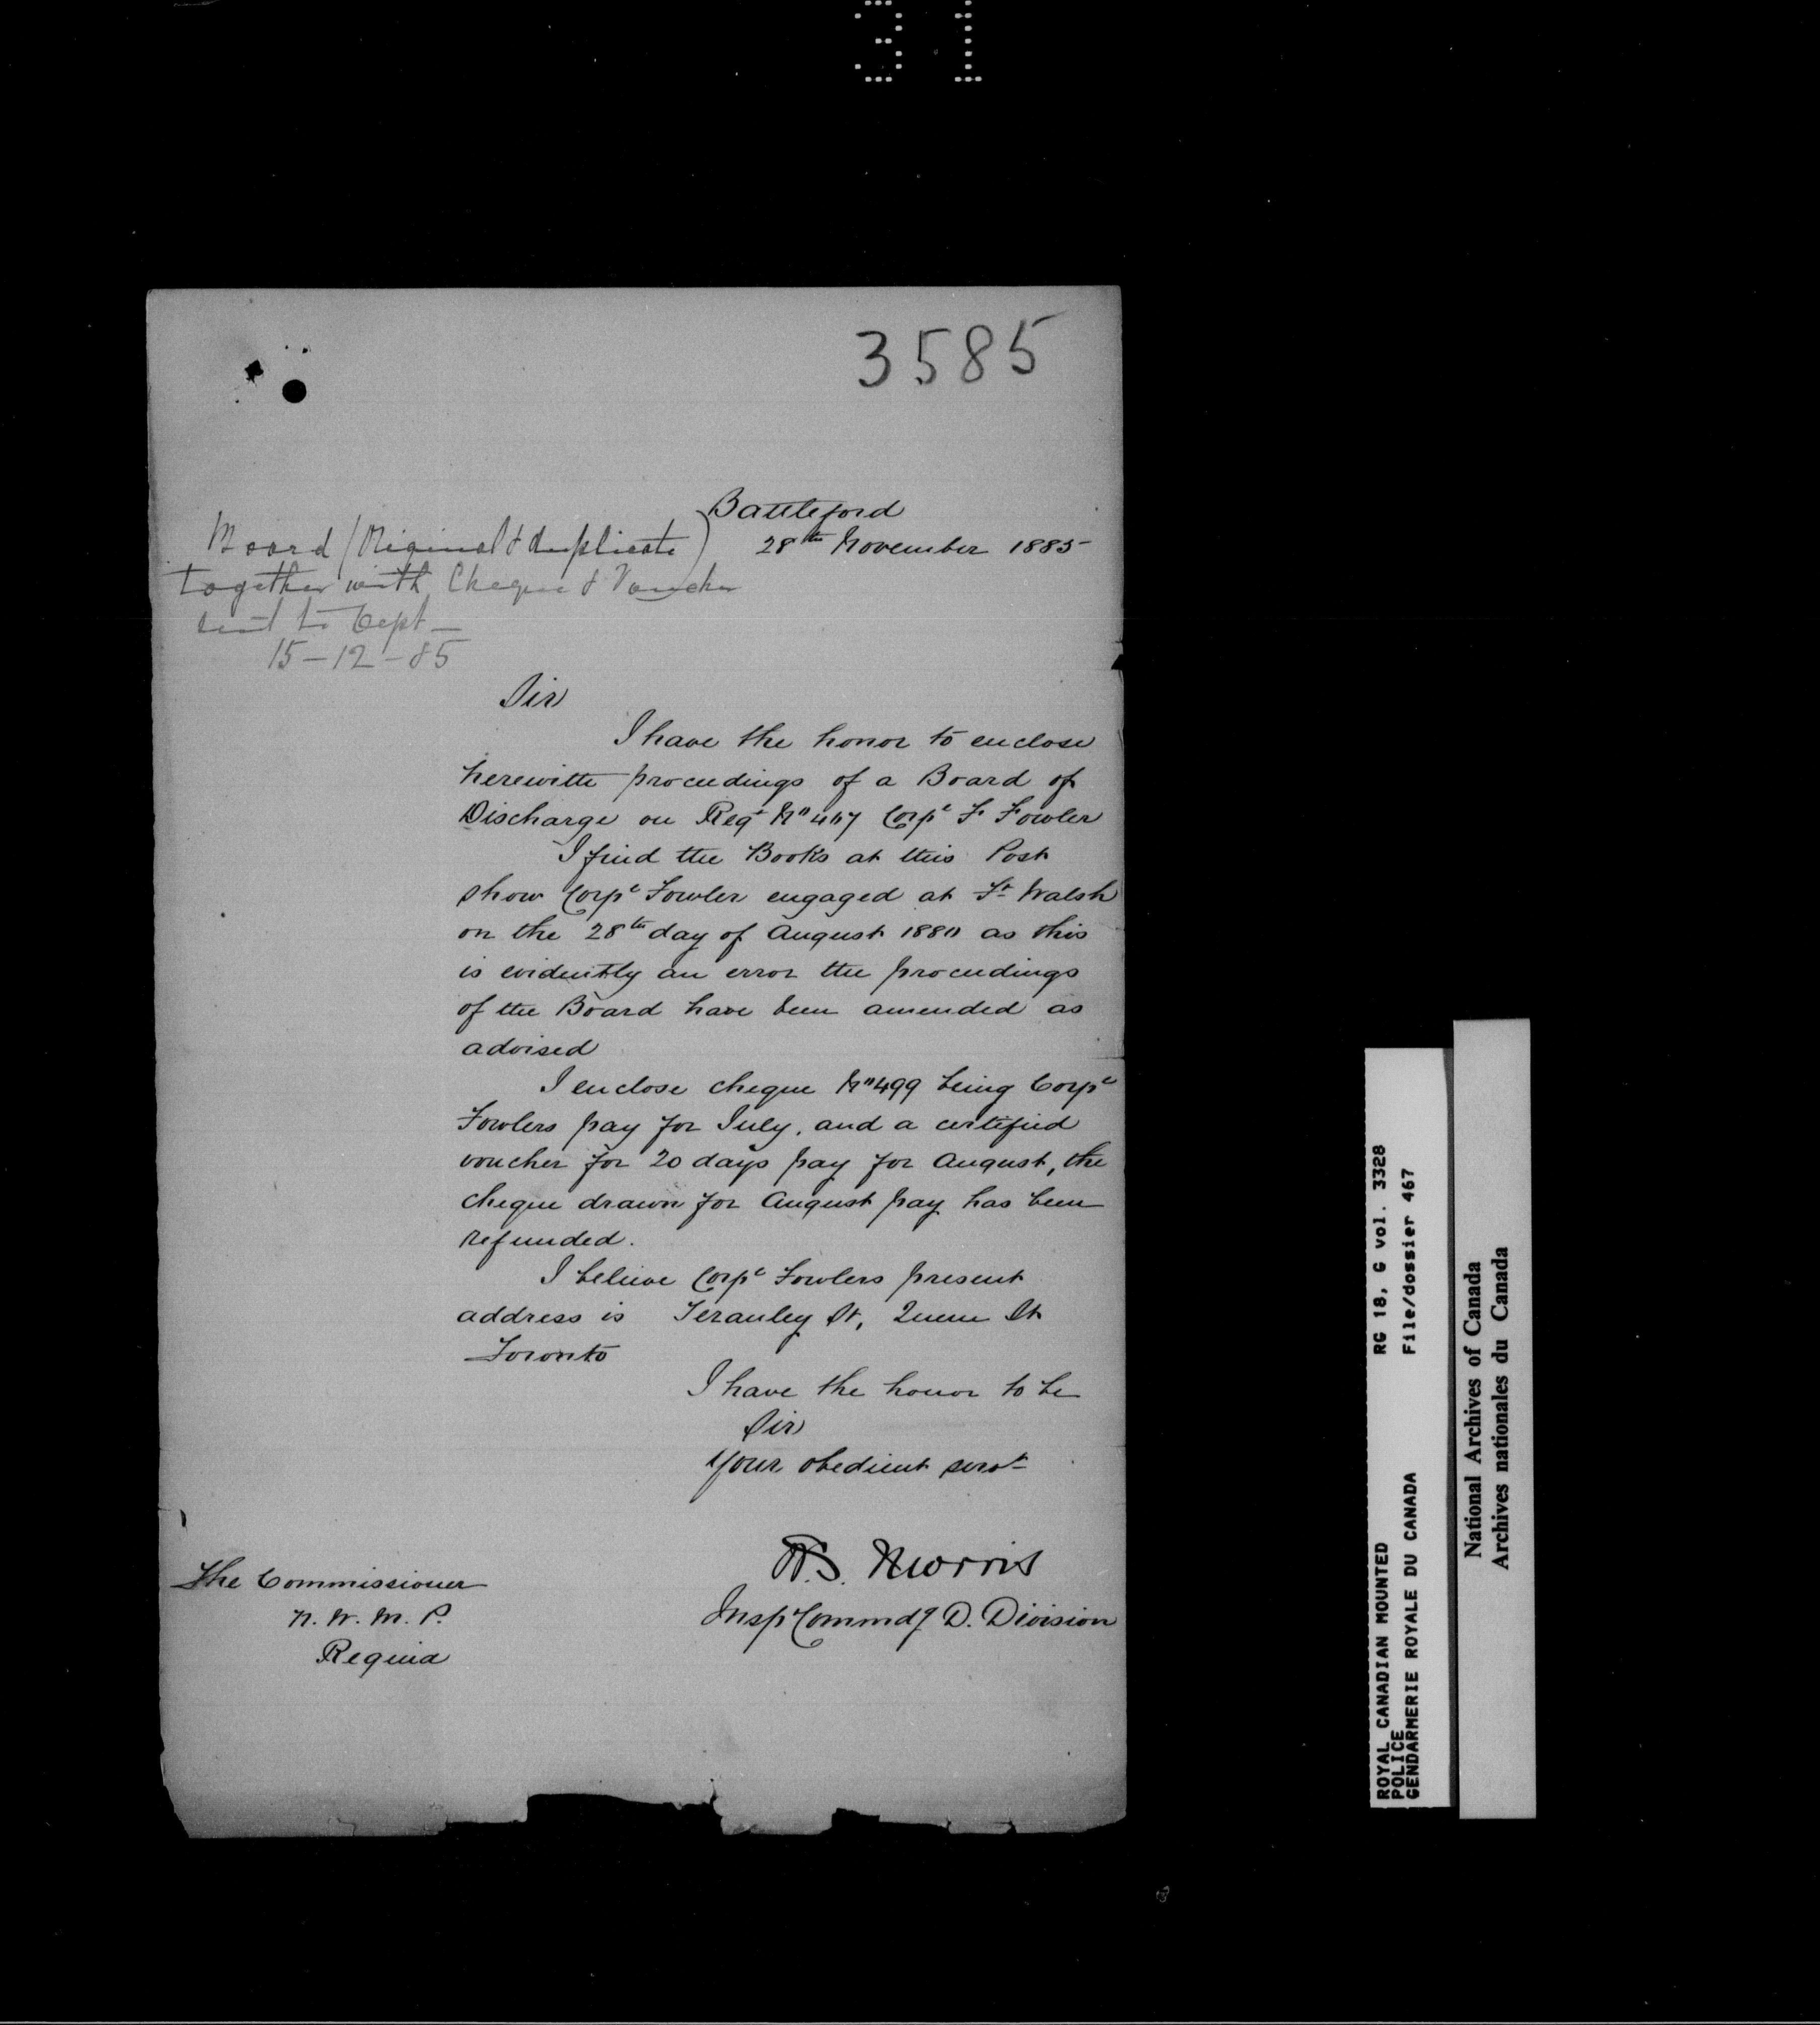 31
3585
Battleford
28th November 1885
Board (Original & duplicate)
together with Cheque & Voucher
sent to Dept
15-12-85
Sir
I have the honor to enclose
herewith proceedings of a Board of
Discharge on Regt No 467 Corpl F Fowler
I find the Books at this Post
show Corpl Fowler engaged at Ft Walsh
on the 28th day of August 1880 as this
is evidently an error the proceedings
of the Board have been amended as
advised
I enclose cheque No 499 being Corpl
Fowlers pay for July, and a certified
voucher for 20 days pay for August, the
cheque drawn for August pay has been
refunded.
I believe Corpl Fowlers present
address is Teranley St, Queen St
Toronto
I have the honor to be
Sir
Your obedient servt
W.S. Morris
Insp Commdg D. Division
The Commissioner
N. W. M. P.
Regina
ROYAL CANADIAN MOUNTED
POLICE
GENDARMERIE ROYALE DU CANADA
RG 18, G vol. 3328
File/dossier 467
National Archives of Canada
Archives nationales du Canada